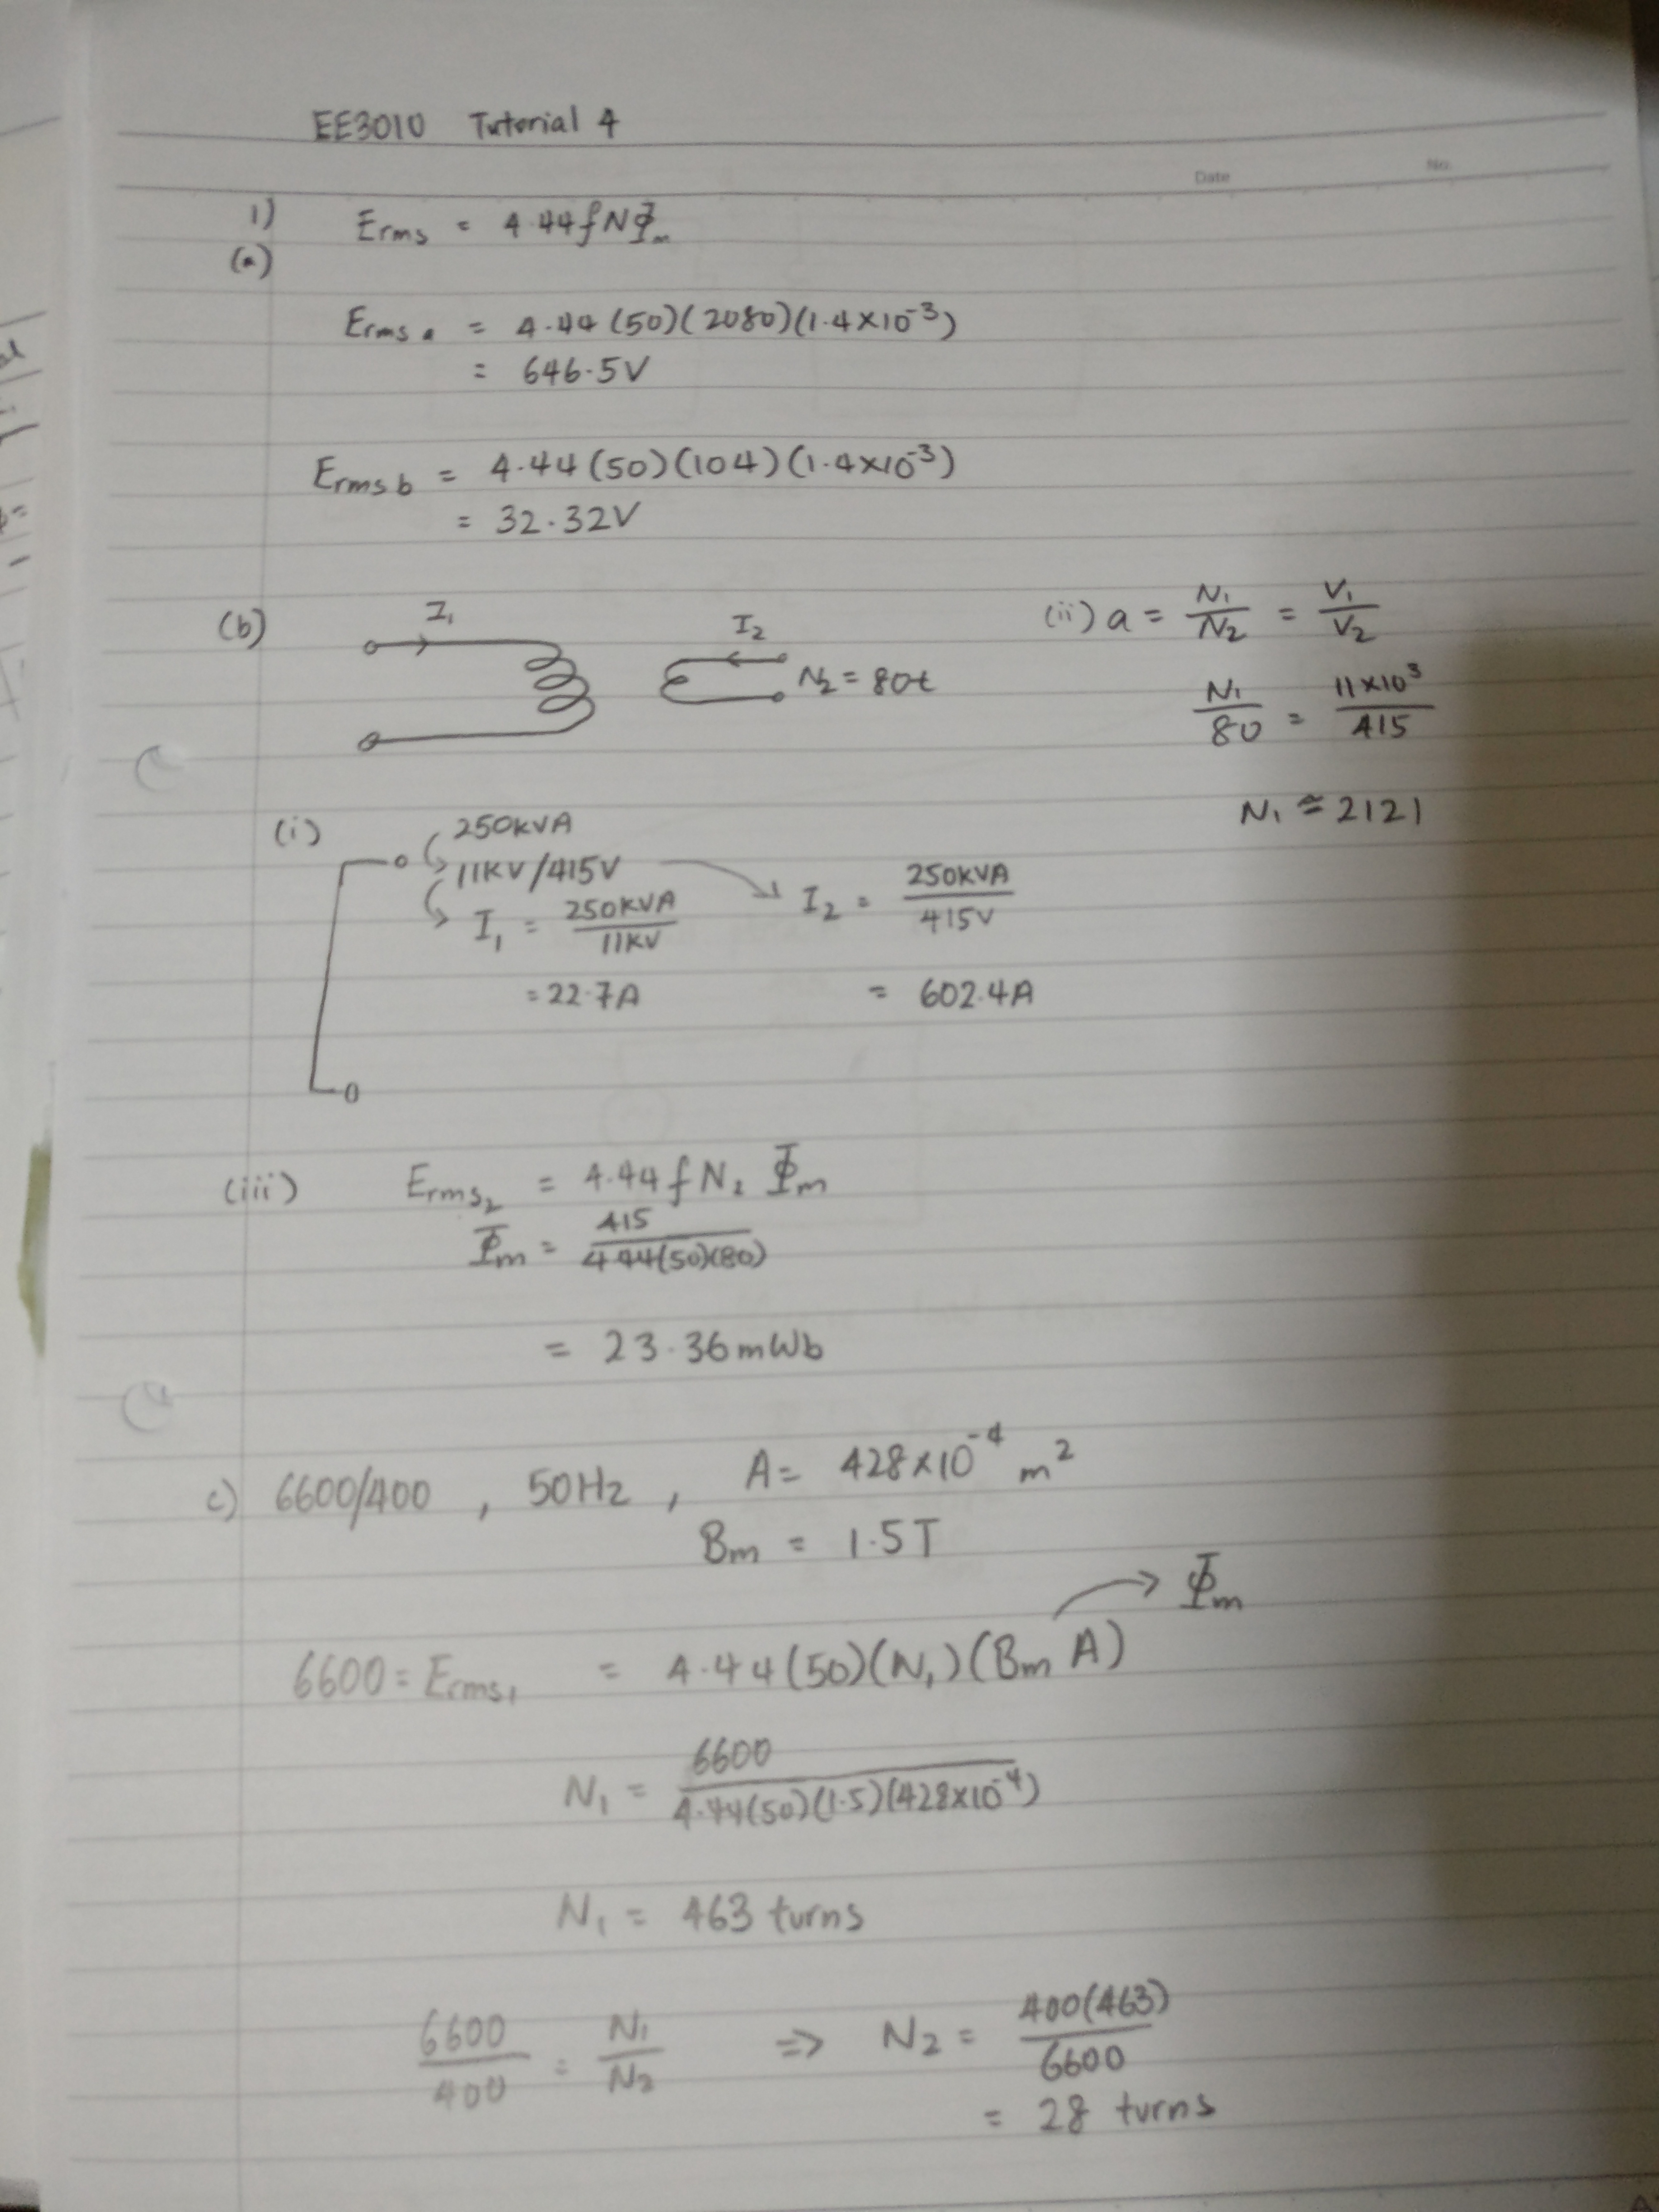 EE3010 Tutorial 4
Date No.
1) Erms = 4.44fNΦm
(a)
Erms a = 4.44(50)(2080)(1.4×10⁻³)
= 646.5V
Erms b = 4.44(50)(104)(1.4×10⁻³)
= 32.32V
(b) I₁ I₂ N₂ = 80t
(ii) a = N₁/N₂ = V₁/V₂
N₁/80 = 11×10³/415
N₁ ≈ 2121
(i) 250kVA
11KV/415V
I₁ = 250KVA/11KV
= 22.7A
I₂ = 250KVA/415V
= 602.4A
(iii) Erms₂ = 4.44fN₂Φm
Φm = 415/4.44(50)(80)
= 23.36mWb
c) 6600/400, 50Hz, A = 428×10⁻⁴ m²
Bm = 1.5T
Φm
6600 = Erms₁ = 4.44(50)(N₁)(Bm A)
N₁ = 6600/4.44(50)(1.5)(428×10⁻⁴)
N₁ = 463 turns
6600/400 = N₁/N₂ ⇒ N₂ = 400(463)/6600
= 28 turns